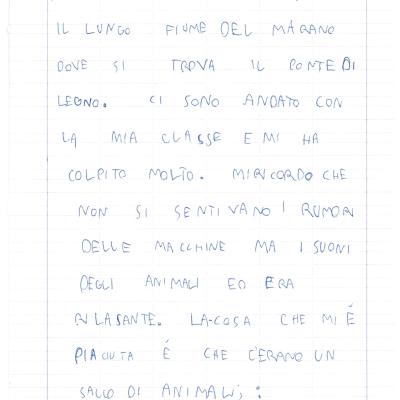 IL LUNGO FIUME DEL MARANO
DOVE SI TROVA IL PONTE DI
LEGNO. CI SONO ANDATO CON
LA MIA CLASSE E MI HA
COLPITO MOLTO. MI RICORDO CHE
NON SI SENTIVANO I RUMORI
DELLE MACCHINE MA I SUONI
DEGLI ANIMALI ED ERA
RILASANTE. LA COSA CHE MI É
PIACIUTA É CHE C'ERANO UN
SACCO DI ANIMALI, :